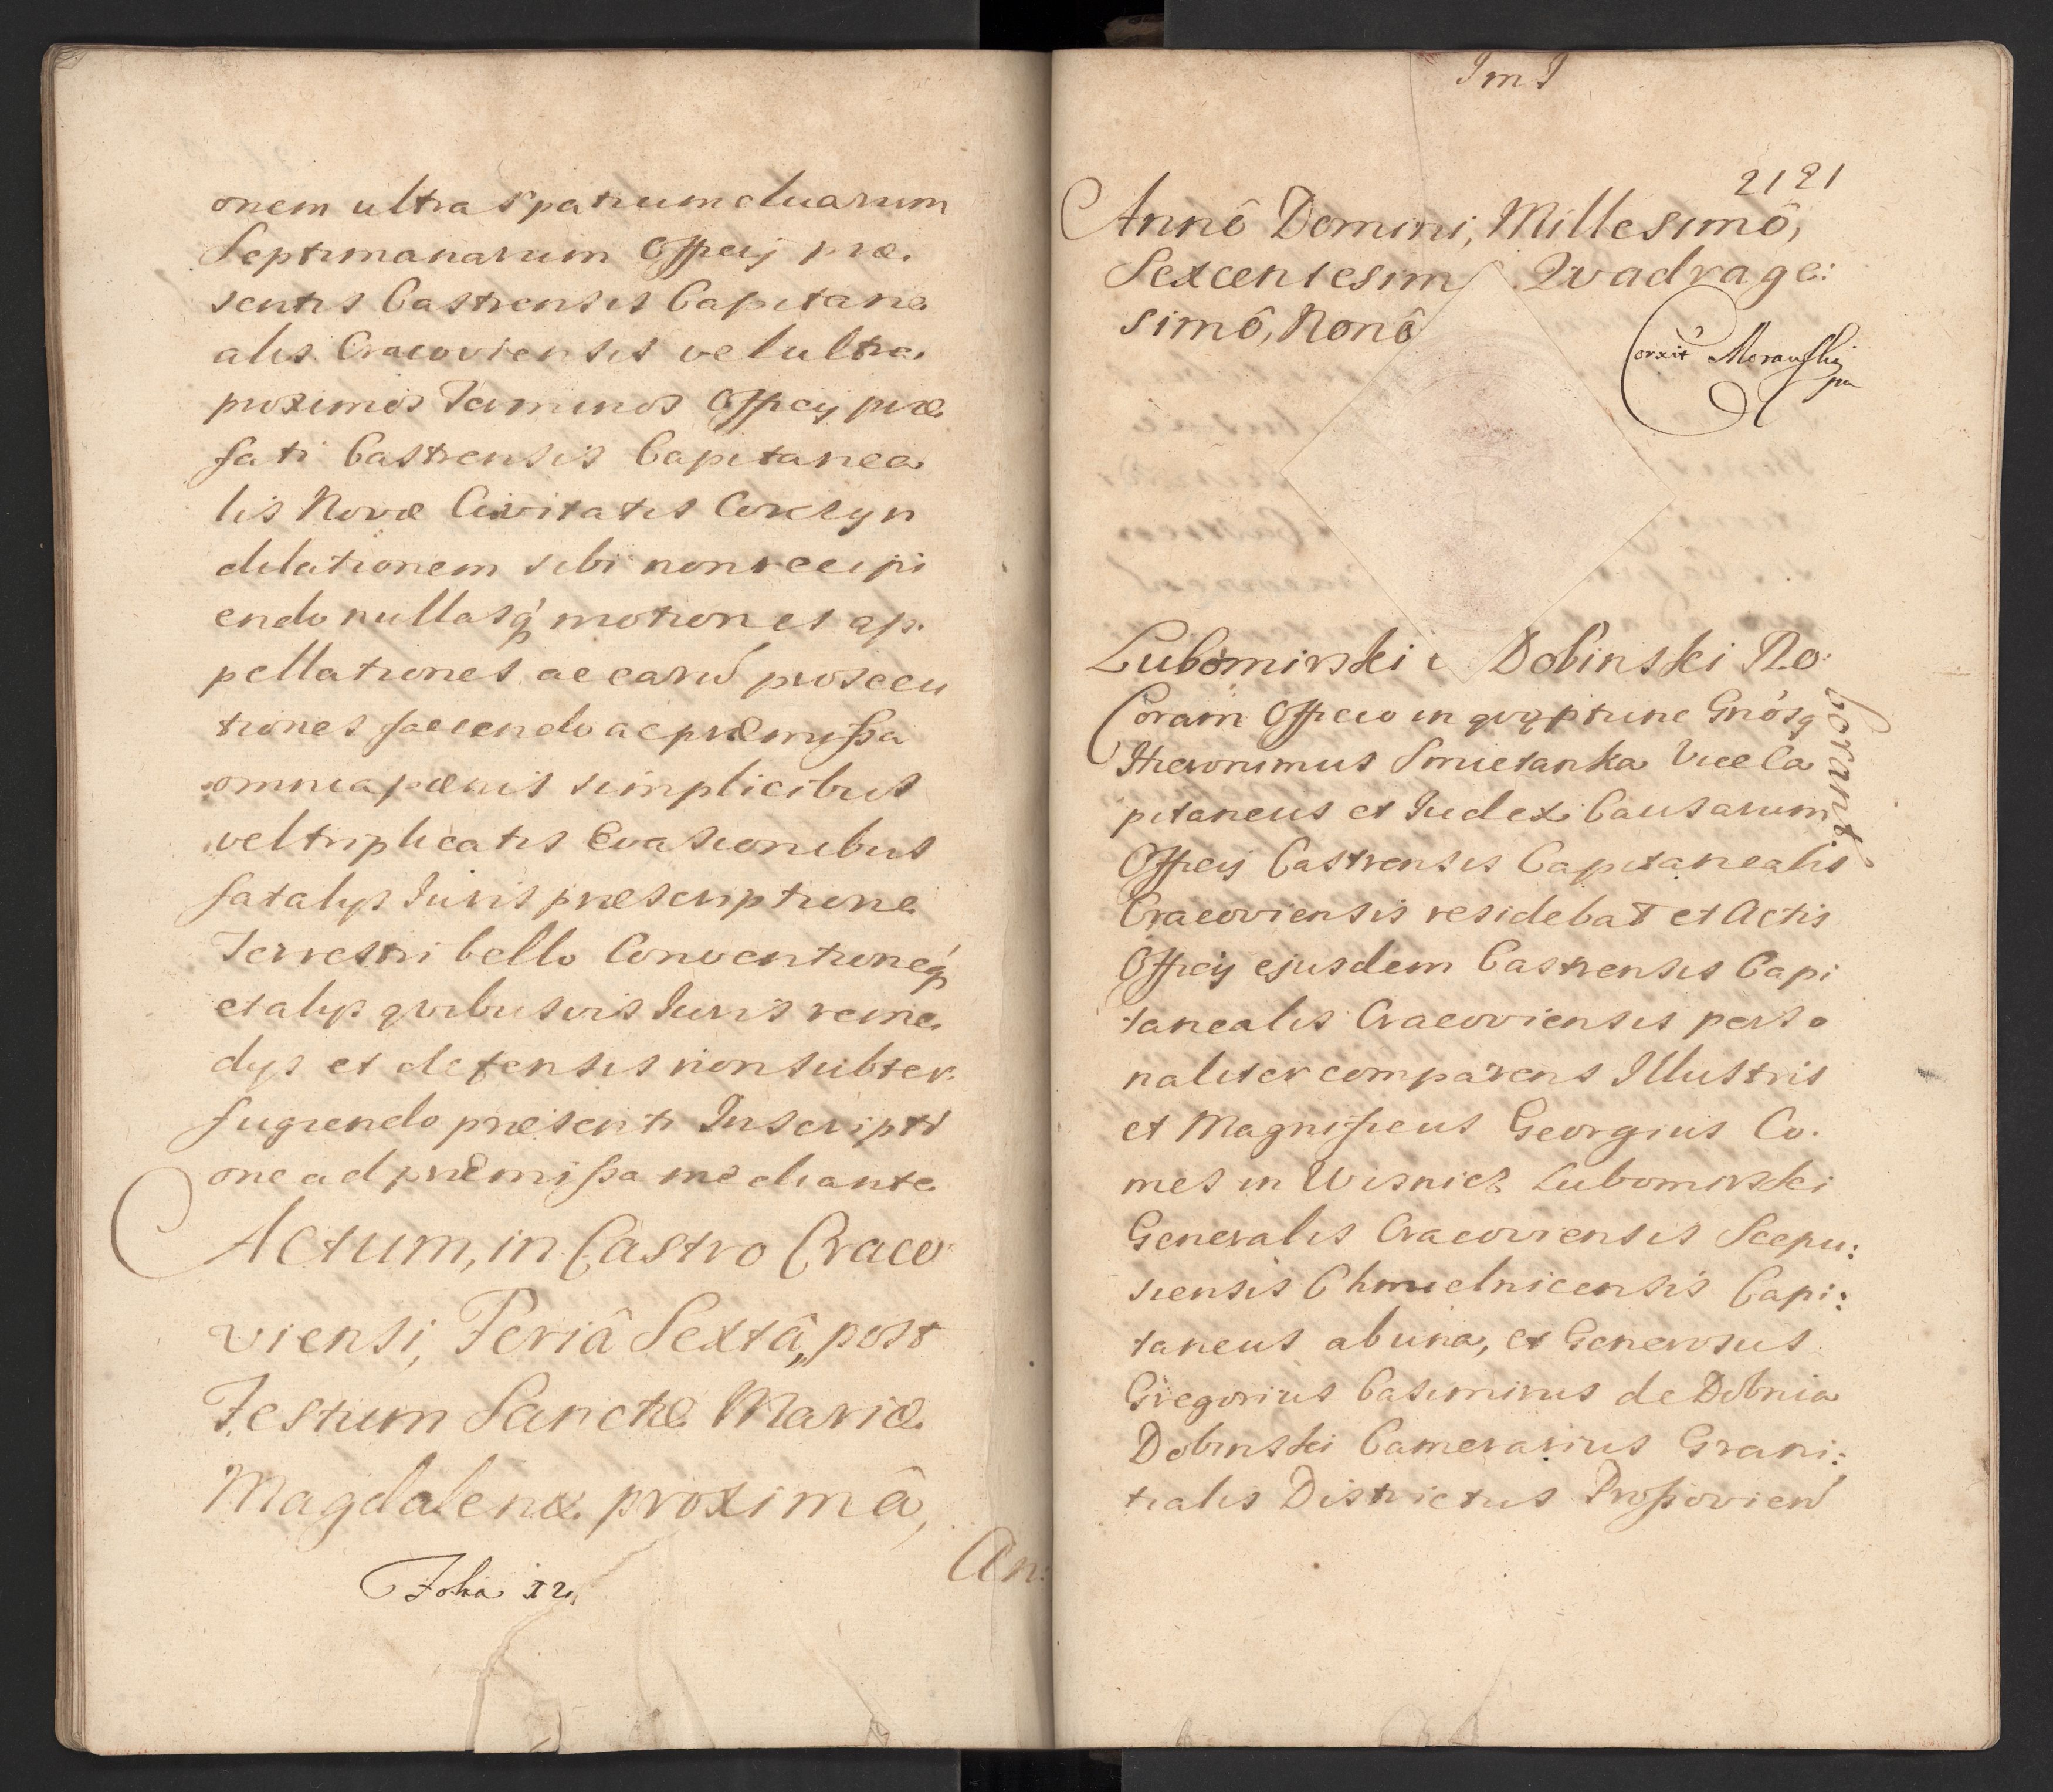 onem ultra spatium duarum
Septimanarum Officij præ
sentis Castrensis Capitane
alis Cracoviensis vel ultra
proximos Terminos Officij præ
fati Castrensis Capitanea
lis Novæ Civitatis Corczyn
dilationem sibi non recipi
endo nullasq́ motiones ap
pellationes ac earuḿ prosecu
tiones faciendo ac præmissa
omnia pænis simplicibus
vel triplicatis Evasionibus
fatalijs Iuris præscriptione
Terrestri bello Conventioneq́
et alijs qvibusvis Iuris reme
dijs et defensis non subter
fugiendo præsenti Inscripti
one ad præmissa mediante
Actum, in Castro Craco
viensi, Feriâ Sextâ, post
Festum Sanctæ Mariæ
Magdalenæ proximâ,
An:
Folia 12
21 21
Annô Domini, Millesimô,
Sexcentesim Qvadrage:
simô, Nonô
Corxit Morawski
mp
Lubomirski Dobinski Ro:
borant
Coram Officio in
Hieronimus Smietanka Vice Ca
pitaneus et Iudex Causarum
Officij Castrensis Capitanealis
Cracoviensis residebat et Actis
Officij ejusdem Castrensis Capi
tanealis Cracoviensis perso
naliter comparens Illustris
et Magnificus Georgius Co.
mes in Wisnicz Lubomirski
Generalis Cracoviensis Scepu:
siensis Chmielnicensis Capi:
taneus ab una, et Generosus
Gregorius Casimirus de Dobnia
Dobinski Camerarius Grani:
tialis Districtus Prossovień